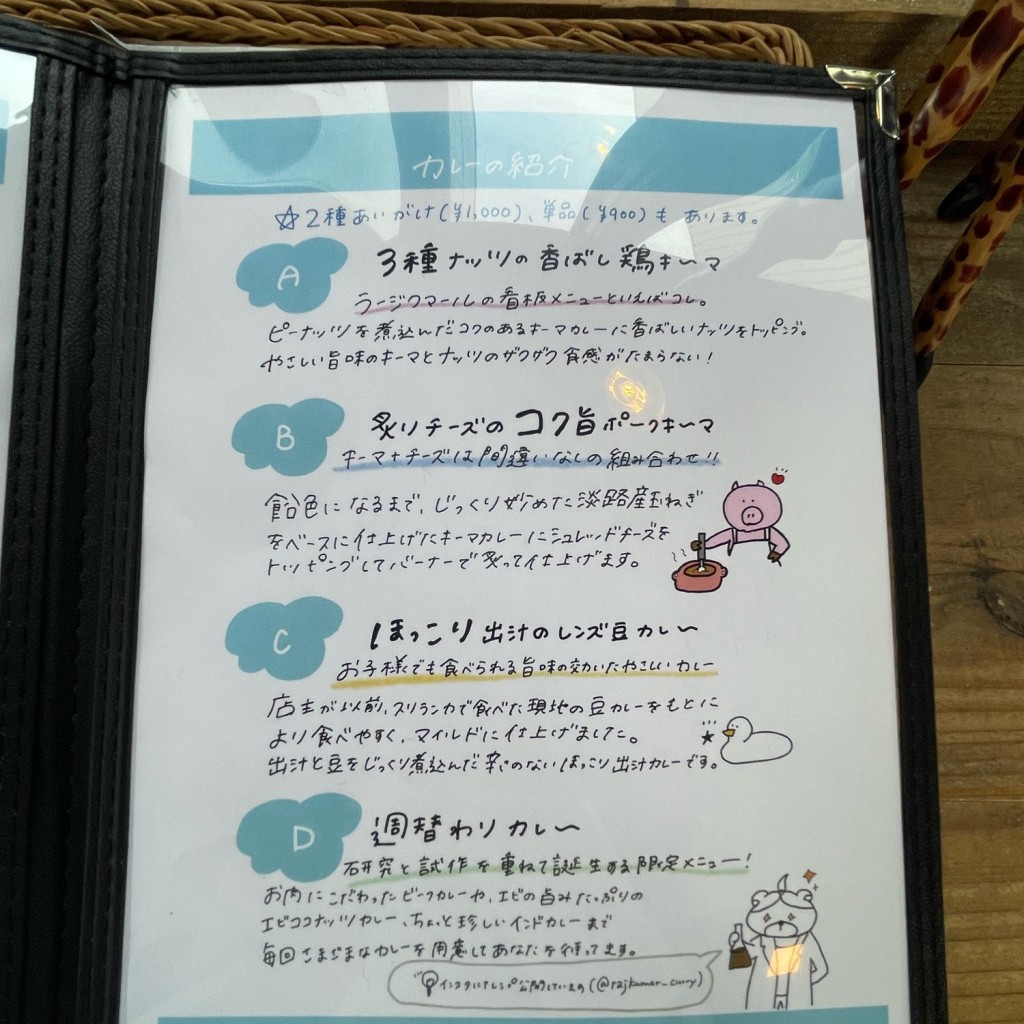 カレーの紹介
☆2種あいがけ(¥1,000)、単品(¥900)も あります。
A
3種ナッツの香ばし鶏キーマ
ラージクマールの看板メニューといえばコレ。
ピーナッツを煮込んだコクのあるキーマカレーに香ばしいナッツをトッピング。
やさしい旨味のキーマとナッツのザクザク食感がたまらない!
B
炙りチーズのコク旨ポークキーマ
キーマ+チーズは間違いなしの組み合わせ!!
飴色になるまで、じっくり炒めた淡路産玉ねぎ
をベースに仕上げたキーマカレーにシュレッドチーズを
トッピングしてバーナーで炙って仕上げます。
C
ほっこり出汁のレンズ豆カレー
お子様でも食べられる旨味の効いたやさしいカレー
店主が以前、スリランカで食べた現地の豆カレーをもとに
より食べやすく、マイルドに仕上げました。
出汁と豆をじっくり煮込んだ辛さのないほっこり出汁カレーです。
D
週替わりカレー
研究と試作を重ねて誕生する限定メニュー!
お肉にこだわったビーフカレーや、エビの旨みたっぷりの
エビココナッツカレー、ちょっと珍しいインドカレーまで
毎回さまざまなカレーを用意してあなたを待ってます。
インスタにてレシピ公開しています(@rajkumar_curry)